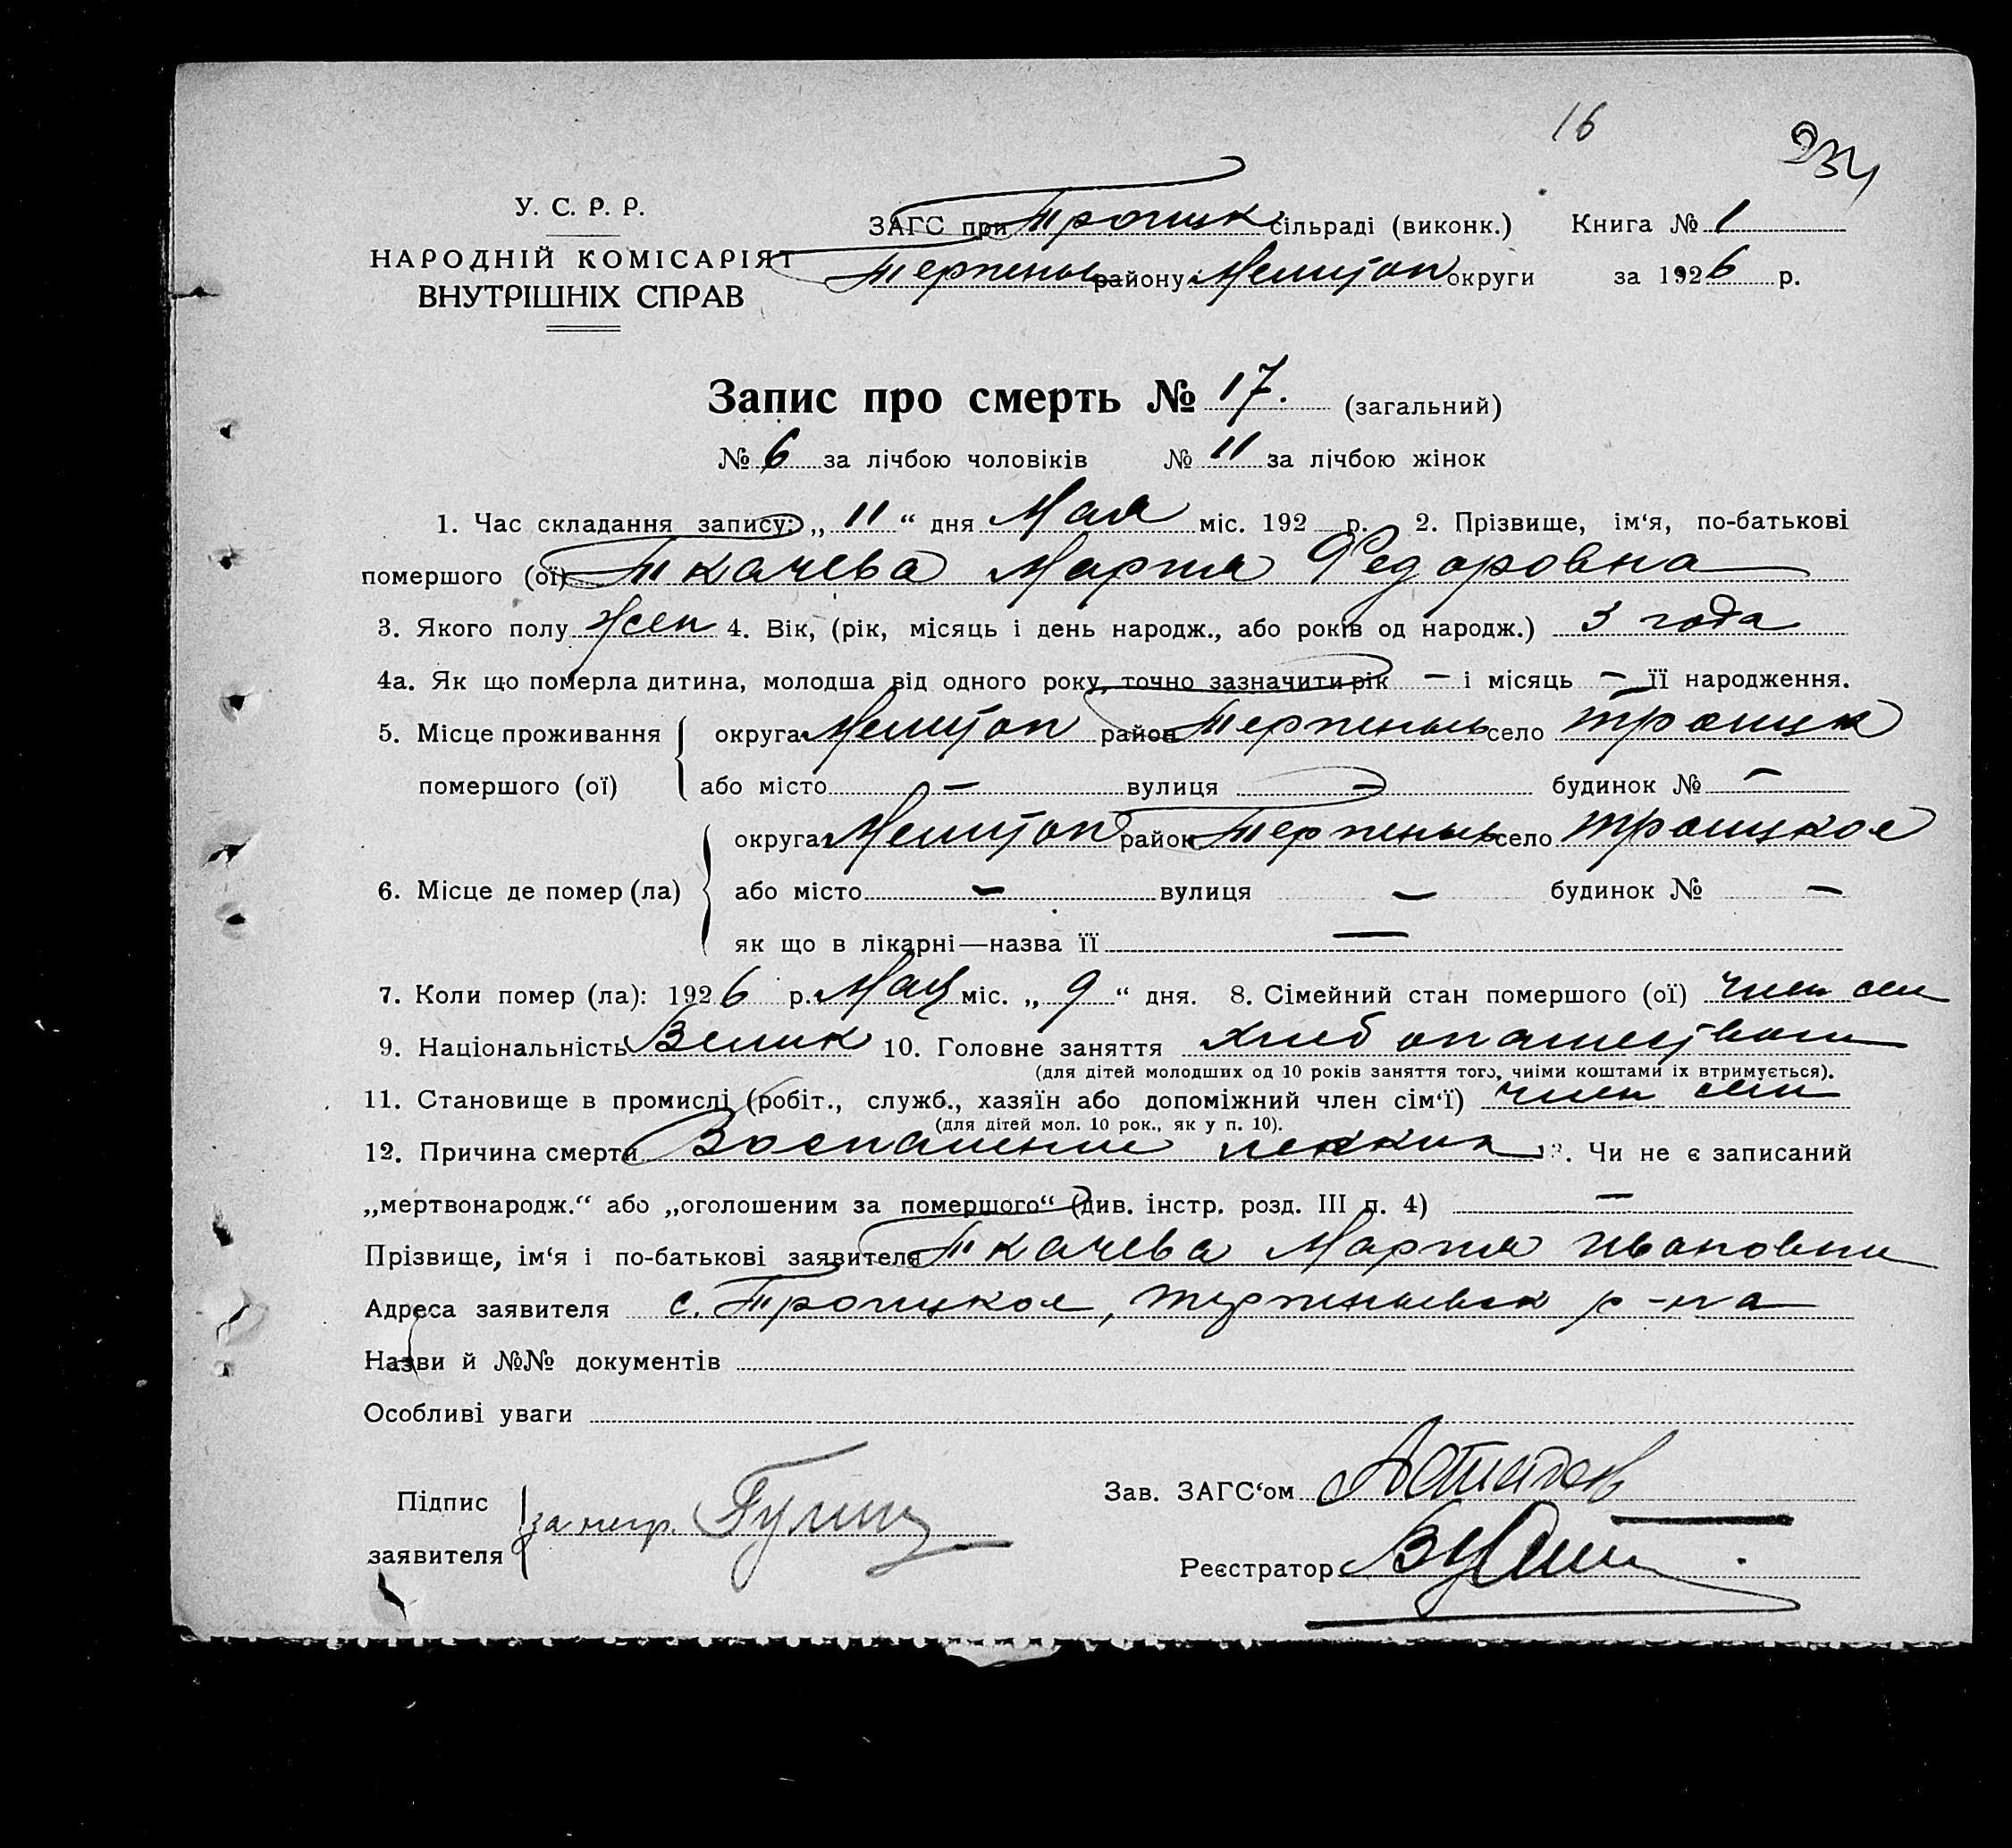 16
234
У. С. Р. Р.
НАРОДНІЙ КОМІСАРІЯТ
ВНУТРІШНІХ СПРАВ
ЗАГС при Троицк сільраді (виконк.) Книга № 1
Терпеньев району Мелитоп округи за 1926 р.
Запис про смерть № 17. (загальний)
№ 6 за лічбою чоловіків № 11 за лічбою жінок
1. Час складання запису: „ 11 “ дня Мая міс. 192 р. 2. Прізвище, ім‘я, по-батькові
помершого (ої) Ткачева Мария Федоровна
3. Якого полу Жен 4. Вік, (рік, місяць і день народж., або років од народж.) 3 года
4а. Як що померла дитина, молодша від одного року, точно зазначити рік — і місяць — її народження.
5. Місце проживання округа Мелитоп район Терпеньев село Троицк
помершого (ої) або місто — вулиця — будинок № —
округа Мелитоп район Терпеньев село Троицкое
6. Місце де помер (ла) або місто — вулиця — будинок № —
як що в лікарні—назва її —
7. Коли помер (ла): 1926 р. Мая міс. „ 9 “ дня. 8. Сімейний стан помершого (ої) член сем
9. Національність Велик 10. Головне заняття хлебопашество
(для дітей молодших од 10 років заняття того, чиїми коштами їх втримується).
11. Становище в промислі (робіт., служб., хазяїн або допоміжний член сім‘ї) член сем
(для дітей мол. 10 рок., як у п. 10).
12. Причина смерти Воспаление легких 13. Чи не є записаний
„мертвонародж.“ або „оголошеним за помершого“ (див. інстр. розд. III п. 4) —
Прізвище, ім‘я і по-батькові заявителя Ткачева Мария Ивановна
Адреса заявителя с. Троицкое, Терпеньевск р-на
Назви й №№ документів
Особливі уваги
Підпис заявителя за негр.
Зав. ЗАГС‘ом
Реєстратор